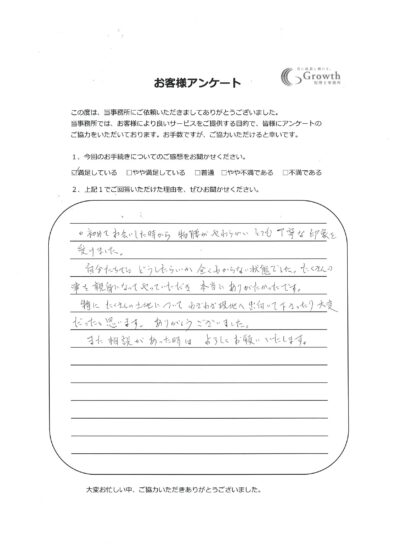 お客様アンケート
Growth
税理士事務所
この度は、当事務所にご依頼いただきましてありがとうございました。
当事務所では、お客様により良いサービスをご提供する目的で、皆様にアンケートの
ご協力をいただいております。お手数ですが、ご協力いただけると幸いです。
1．今回のお手続きについてのご感想をお聞かせください。
☑満足している □やや満足している □普通 □やや不満である □不満である
2．上記1でご回答いただけた理由を、ぜひお聞かせください。
初めてお会いした時から 物腰がやわらかい とても丁寧な印象を
受けました。
自分たちでは どうしたらいいか 全くわからない状態でした。たくさんの
事を親身になってやっていただき 本当にありがたかったです。
特に たくさんの土地について わざわざ現地へ出向いて下さったり 大変
だったと思います。 ありがとうございました。
また 相談があった時は よろしくお願いいたします。
大変お忙しい中、ご協力いただきありがとうございました。